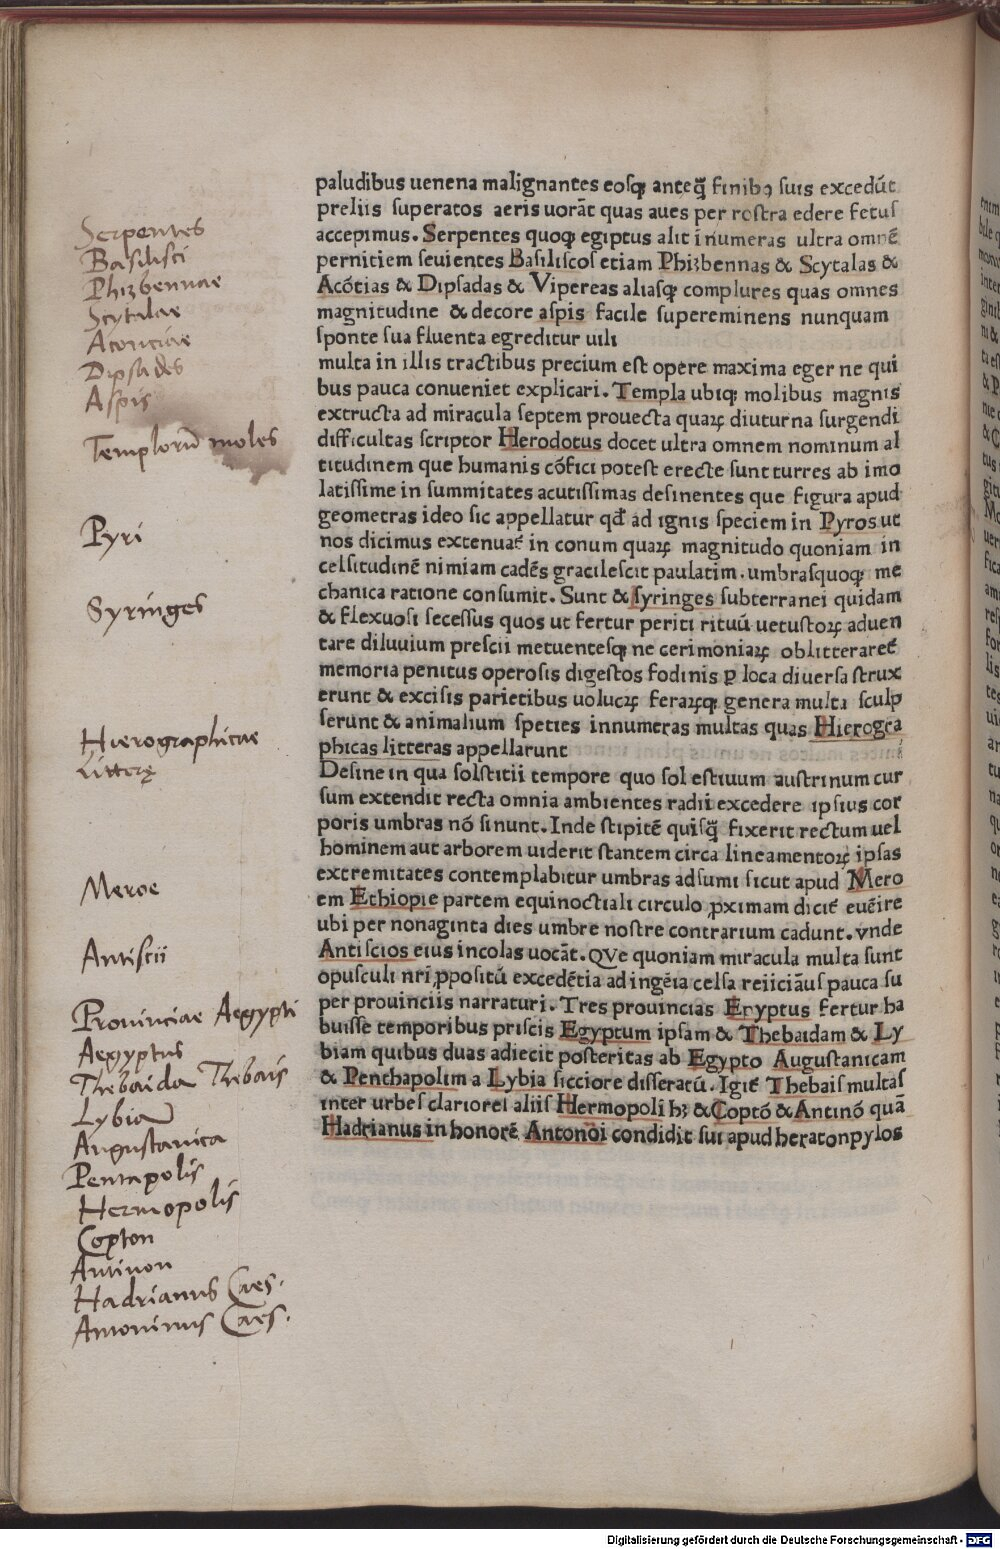 paludibus uenena malignantes eosqꝫ anteq̃ finibꝰ suis excedũt
preliis superatos aeris uorãt quas aues per rostra edere fetus
accepimus. Serpentes quoqꝫ egiptus alit inumeras ultra omnẽ
pernitiem seuientes Basiliscos etiam Phizbennas & Scytalas &
Acõtias & Dipsadas & Vipereas aliasqꝫ complures quas omnes
magnitudine & decore aspis facile supereminens nunquam
sponte sua fluenta egreditur uili
multa in illis tractibus precium est opere maxima eger ne qui
bus pauca conueniet explicari. Templa ubiqꝫ molibus magnis
extructa ad miracula septem prouecta quaꝝ diuturna surgendi
difficultas scriptor Herodotus docet ultra omnem nominum al
titudinem que humanis cõfici potest erecte sunt turres ab imo
latissime in summitates acutissimas desinentes que figura apud
geometras ideo sic appellatur qđ ad ignis speciem in Pyros ut
nos dicimus extenuať in conum quaꝝ magnitudo quoniam in
celsitudinẽ nimiam cadẽs gracilescit paulatim. umbrasquoqꝫ me
chanica ratione consumit. Sunt & syringes subterranei quidam
& flexuosi secessus quos ut fertur periti rituũ uetustoꝝ aduen
tare diluuium prescii metuentesqꝫ ne cerimoniaꝝ oblitterareť
memoria penitus operosis digestos fodinis ꝑ loca diuersa strux
erunt & excisis parietibus uolucꝝ feraꝝqꝫ genera multa sculp
serunt & animalium speties innumeras multas quas Hierogra
phicas litteras appellarunt
Desine in qua solstitii tempore quo sol estiuum austrinum cur
sum extendit recta omnia ambientes radii excedere ipsius cor
poris umbras nõ sinunt. Inde stipitẽ quisq̃ fixerit rectum uel
hominem aut arborem uiderit stantem circa lineamentoꝝ ipsas
extremitates contemplabitur umbras adsumi sicut apud Mero
em Ethiopie partem equinoctiali circulo ꝓximam diciť euẽire
ubi per nonaginta dies umbre nostre contrarium cadunt. vnde
Antiscios eius incolas uocãt. QVe quoniam miracula multa sunt
opusculi nri ꝓpositũ excedẽtia ad ingẽia celsa reiiciãus pauca su
per prouinciis narraturi. Tres prouincias Eryptus fertur ha
buisse temporibus priscis Egyptum ipsam & Thebaidam & Ly
biam quibus duas adiecit posteritas ab Egypto Augustanicam
& Penthapolim a Lybia sicciore disseratũ. Igiť Thebais multas
inter urbes clariores aliis Hermopoli hꝫ & Coptõ & Antinõ quã
Hadrianus in honorẽ Antonoi condidit sui apud heratonpylos
Serpentes
Basilisci
Phizbennae
Scytalae
Aconciae
Dipsades
Aspis
Templorũ moles
Pyri
Syringes
Hierographicae
Litterę
Meroe
Antiscii
Prouinciae Aegypti
Aegyptus
Thebaida Thebais
Lybia
Augustanica
Pentapolis
Hermopolis
Copton
Antinon
Hadrianus Caes.
Antoninus Caes.
Digitalisierung gefördert durch die Deutsche Forschungsgemeinschaft - DFG